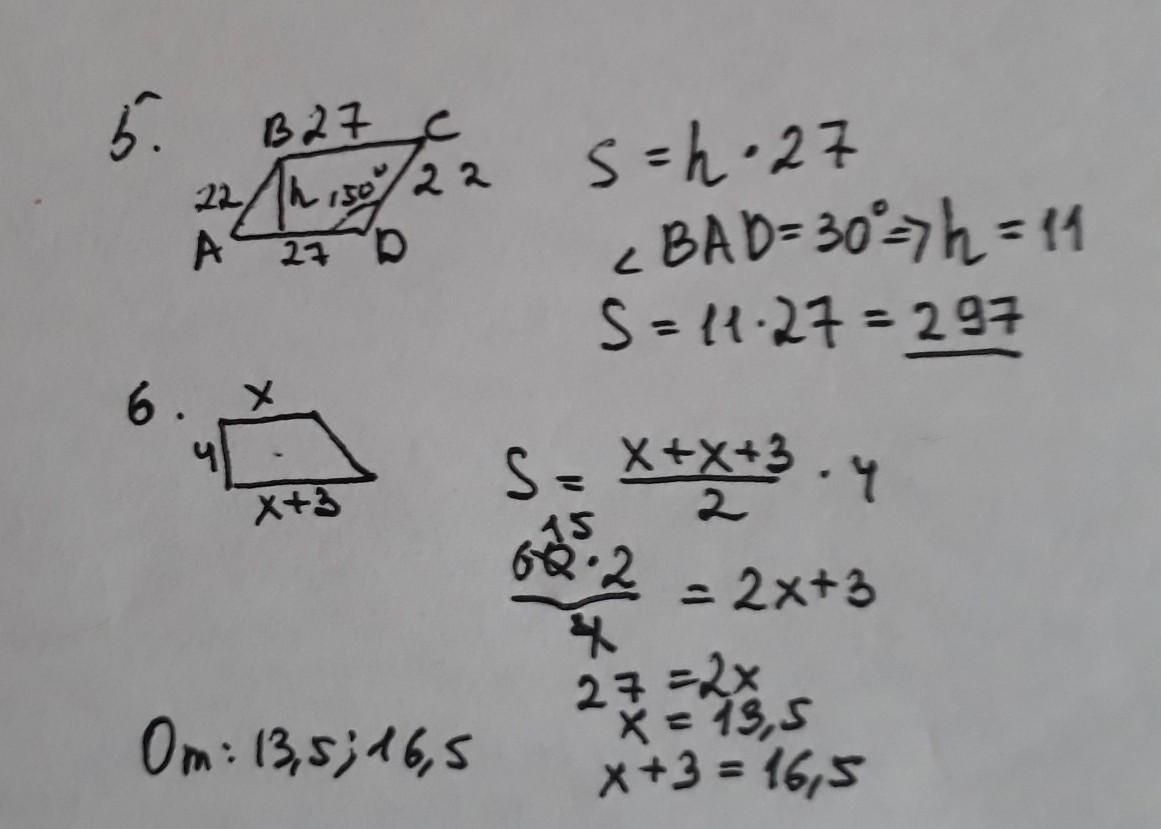 5.
B 27 C
22 h 150° 22
A 27 D
S = h · 27
∠BAD = 30° => h = 11
S = 11 · 27 = 297
6.
x
4
x+3
S = (x+x+3)/2 · 4
15
(60 · 2)/4 = 2x+3
27 = 2x
x = 13,5
x+3 = 16,5
От: 13,5; 16,5